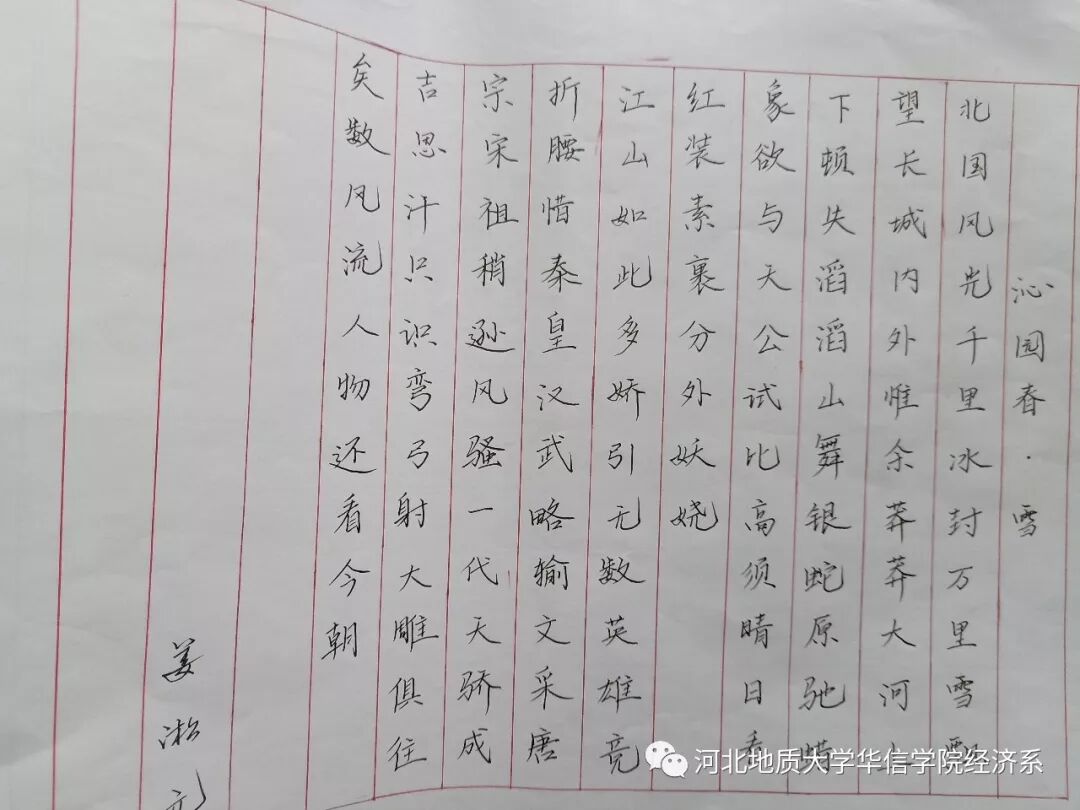 沁园春·雪
北国风光千里冰封万里雪飘
望长城内外惟余莽莽大河上
下顿失滔滔山舞银蛇原驰蜡
象欲与天公试比高须晴日看
红装素裹分外妖娆
江山如此多娇引无数英雄竞
折腰惜秦皇汉武略输文采唐
宗宋祖稍逊风骚一代天骄成
吉思汗只识弯弓射大雕俱往
矣数风流人物还看今朝
姜淞元
河北地质大学华信学院经济系